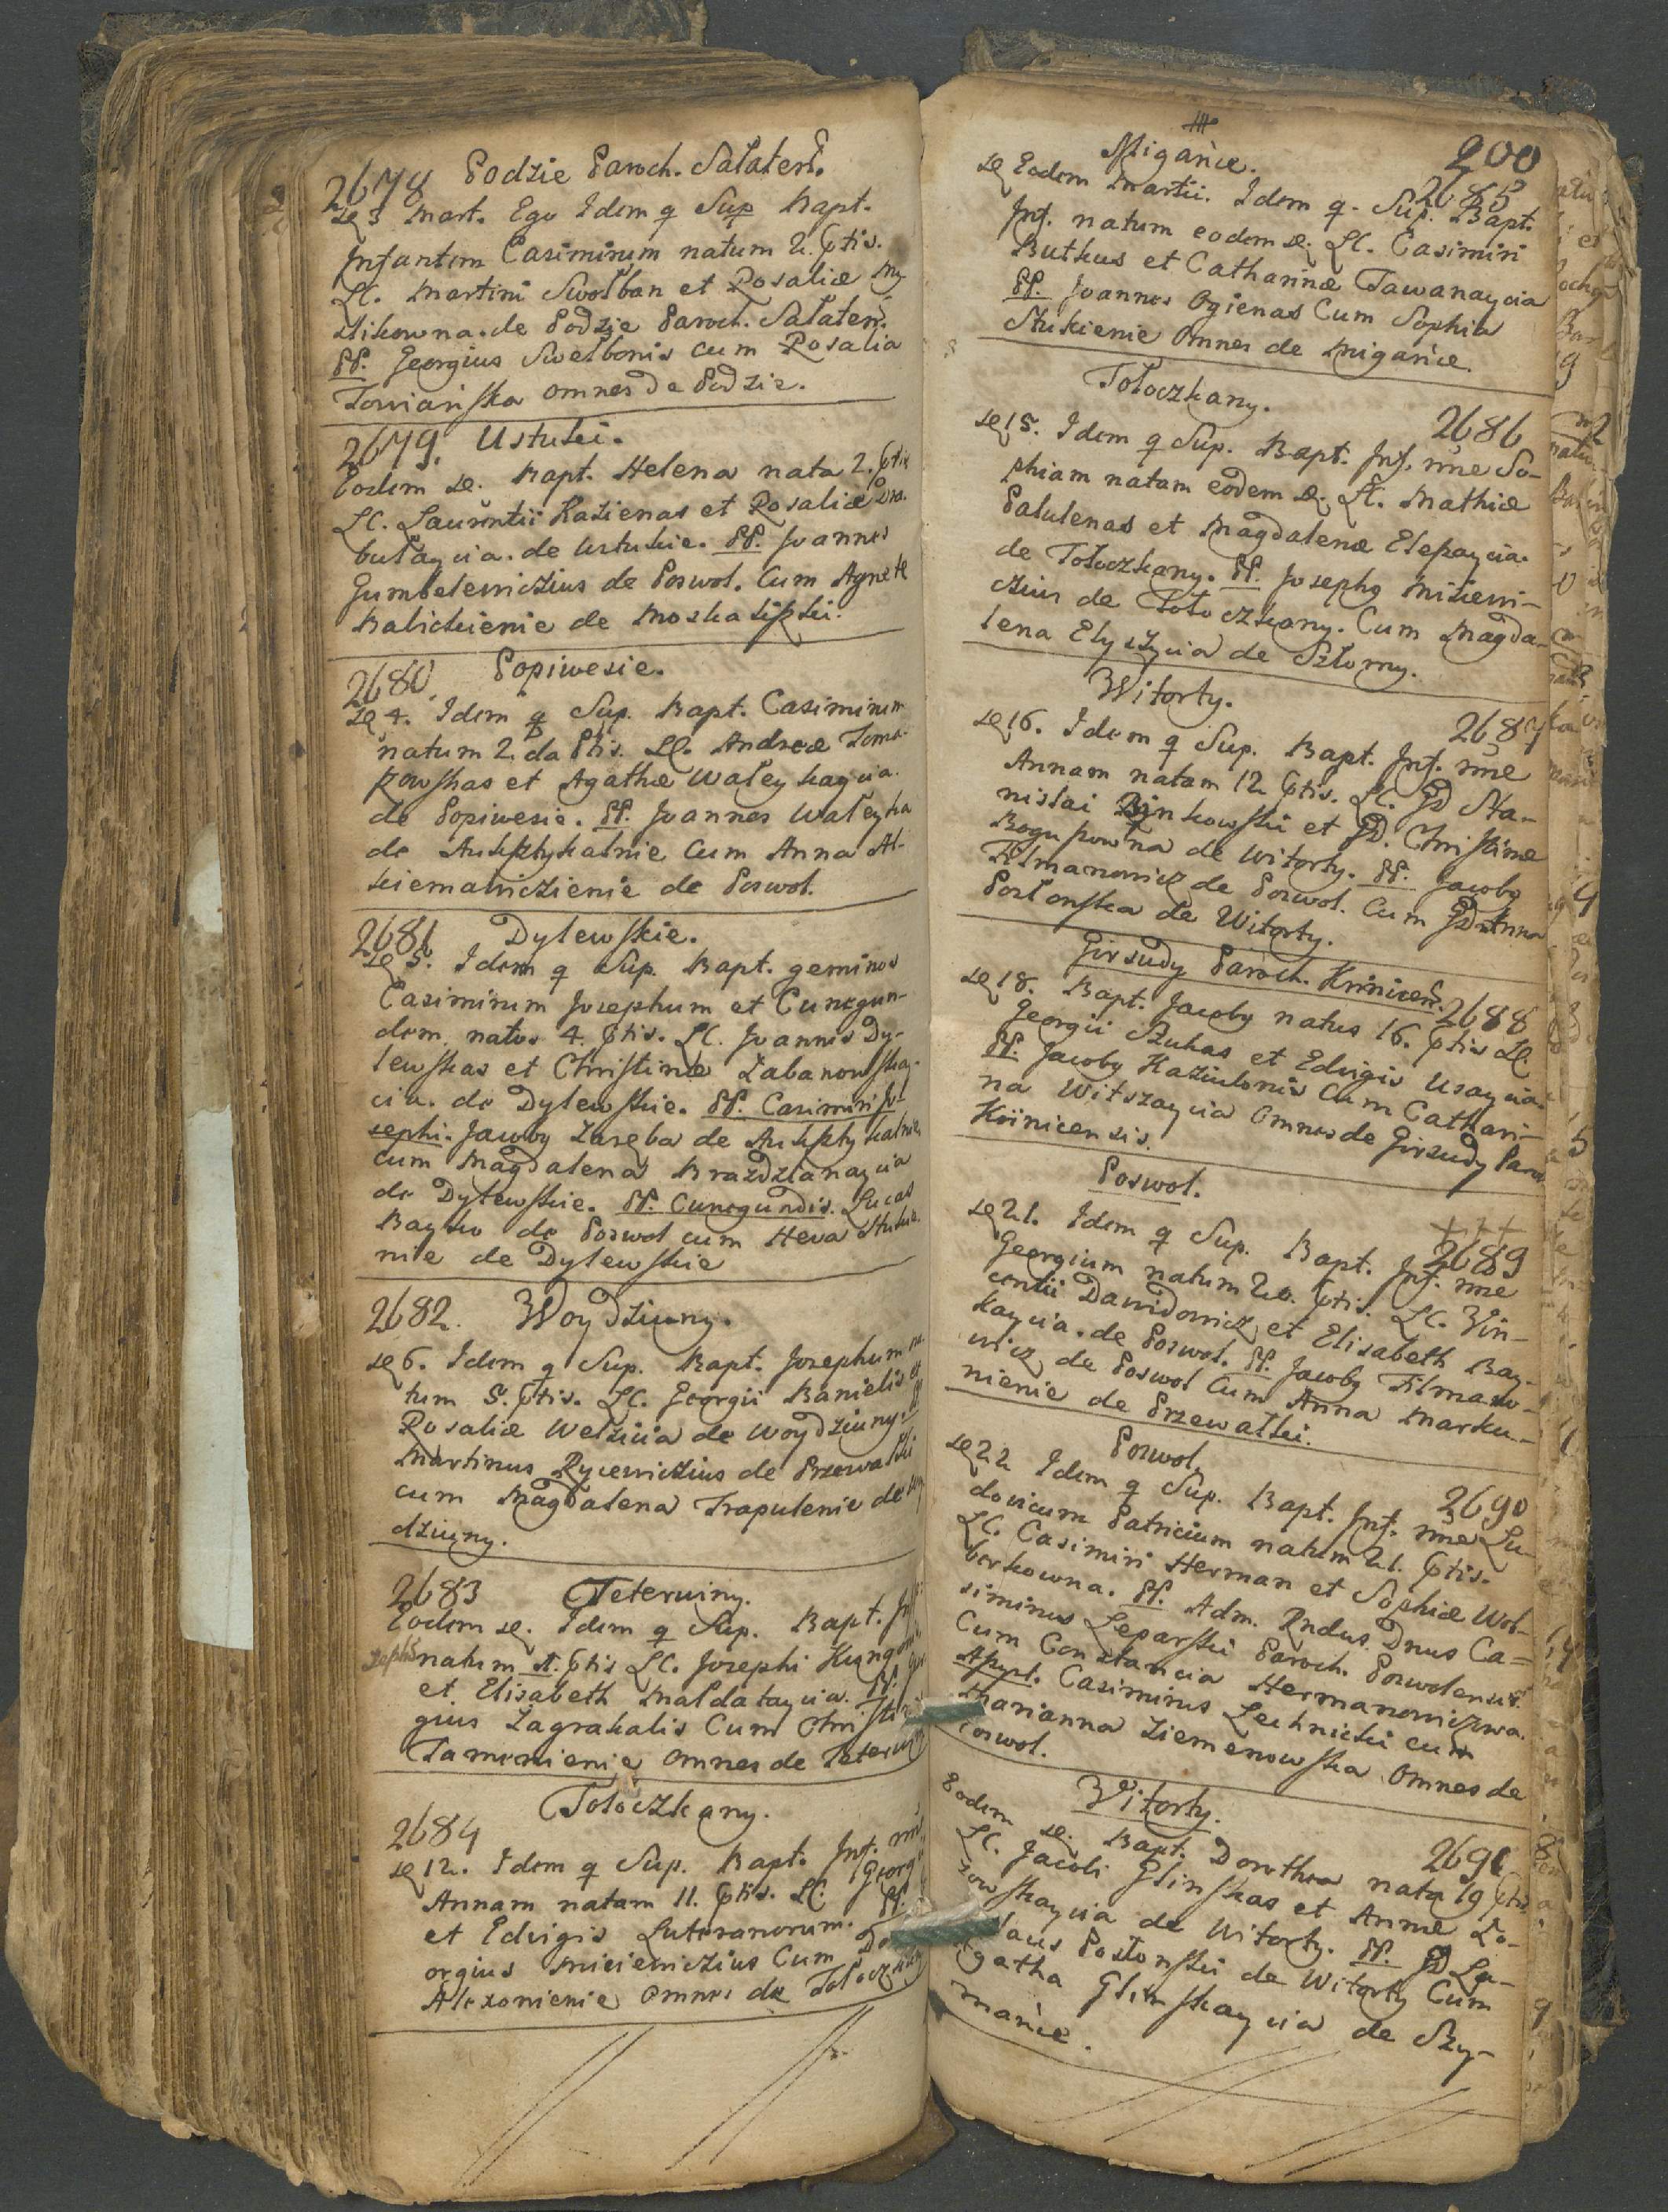 2678 Podzie Paroch. Sałaten.
3 Mart. Ego Idem q Sup Bapt.
Infantem Casimirum natum 2. Ptis.
LC. Martini Swołban et Rosaliæ My-
slikowna. de Podzie Paroch. Sałaten.
PP. Georgius Swelbonis cum Rosalia
Towiańska omnes de Podzie.
2679. Ustuki.
Eodem de. Bapt. Helena nata 2. Ptis
LC. Laurentii Kazienas et Rosaliæ Dra-
bułaycia. de Ustukie. PP. Joannes
Gumbelewiczius de Poswol. Cum Agnete
Balickienie de Moskaliszki.
2680. Popiwesie.
de 4. Idem q Sup. Bapt. Casimirum
natum 2.da Ptis. LC. Andreæ Toma-
szowskas et Agathæ Wałeykaycia.
de Popiwesie. PP. Joannes Wałeyka
de Aukszty kalnie Cum Anna Al-
kiemawiczienie de Poswol.
2681 Dylewskie.
de 5. Idem q Sup. Bapt. geminos
Casimirum Josephum et Cunegun-
dem natos 4. Ptis. LC. Joannis Dy-
lewskas et Christinæ Zabanowskay-
cia. de Dylewskie. PP. Casimiri Jo-
sephi. Jacoby Zaręba de Aukszty kalnie
cum Magdalena Brazdzianaycia
de Dylewskie. PP. Cunegundis. Lucas
Bayko de Poswol cum Heva Stukie-
nie de Dylewskie
2682. Woydziuny.
de 6. Idem q Sup. Bapt. Josephum na-
tum 5. Ptis. LC. Georgii Banielis et
Rosaliæ Welzicia de Woydziuny. PP.
Martinus Rycewiczius de Przewalki
cum Magdalena Trapulenie de Woy-
dziuny.
2683 Teterwiny.
Eodem de. Idem q Sup. Bapt. Inf.
natum Ptis LC. Josephi
et Elisabeth Maldataycia. PP.
gius Zagrakalis Cum
Tamonienie omnes de
Tołoczkany.
2684
de 12. Idem q Sup. Bapt. Inf. nne
Annam natam 11. Ptis. LC. Georgii
et Edvigis Luteranorum. PP.
orgius Miciewiczius Cum
Alexonienie omnes de Tołoczkany
200
Migańce.
2685
de Eodem Martii. Idem q. Sup. Bapt.
Inf. natum eodem de. LC. Casimiri
Butkus et Catharinæ Tawanaycia
PP. Joannes Ogienas Cum Sophia
Stukienie omnes de Migańce.
Tołoczkany.
2686
de 15. Idem q Sup. Bapt. Inf. nne So-
phiam natam eodem de. LC. Mathiæ
Palulenas et Magdalenæ Elepaycia.
de Tołoczkany. PP. Josephq Miciewi-
czius de Tołoczkany. Cum Magda-
lena Elyszycia de Szłomy.
Witorty.
2687
de 16. Idem q Sup. Bapt. Inf. nne
Annam natam 12 Ptis. LC. GD Sta-
nislai Binkowski et GD. Christinæ
Boguszowna de Witorty. PP. Jacobq
Filmanowicz de Poswol. Cum GD Anna
Posłonska de Witorty.
Girsudy Paroch. Krinicen.
2688
de 18. Bapt. Jacobq natus 16. Ptis LC
Georgii Szukas et Edvigis Usaycia.
PP. Jacobq Kaziulonis Cum Cathari-
na Witszaycia Omnes de Girsudy Paro
Krinicensis.
Poswol.
+++
2689
de 21. Idem q Sup. Bapt. Inf. nne
Georgium natum 20. Ptis. LC. Vin-
centii Dawidowicz et Elisabeth Bay-
kaycia. de Poswol. PP. Jacobq Filmano-
wicz de Poswol Cum Anna Marku-
nienie de Przewalki.
Poswol.
2690
de 22 Idem q Sup. Bapt. Inf. nne Lu-
dovicum Patricium natum 21. Ptis.
LC. Casimiri Herman et Sophiæ Wol-
berkowna. PP. Adm. Rndus. Dnus Ca=
simirus Leparski Paroch. Poswolensis
Cum Constancia Hermanowiczowa.
Assyst. Casimirus Lechnicki cum
Marianna Ziemenowska Omnes de
Poswol.
Witorty.
2691
Eodem de. Bapt. Dorothea nata 19 Ptis
LC. Jacobi Glinskas et Annæ Lo-
sowskaycia de Witorty. PP. GD La-
laus Posłonski de Witorty Cum
Agatha Glinskaycia de Szy-
mańce.